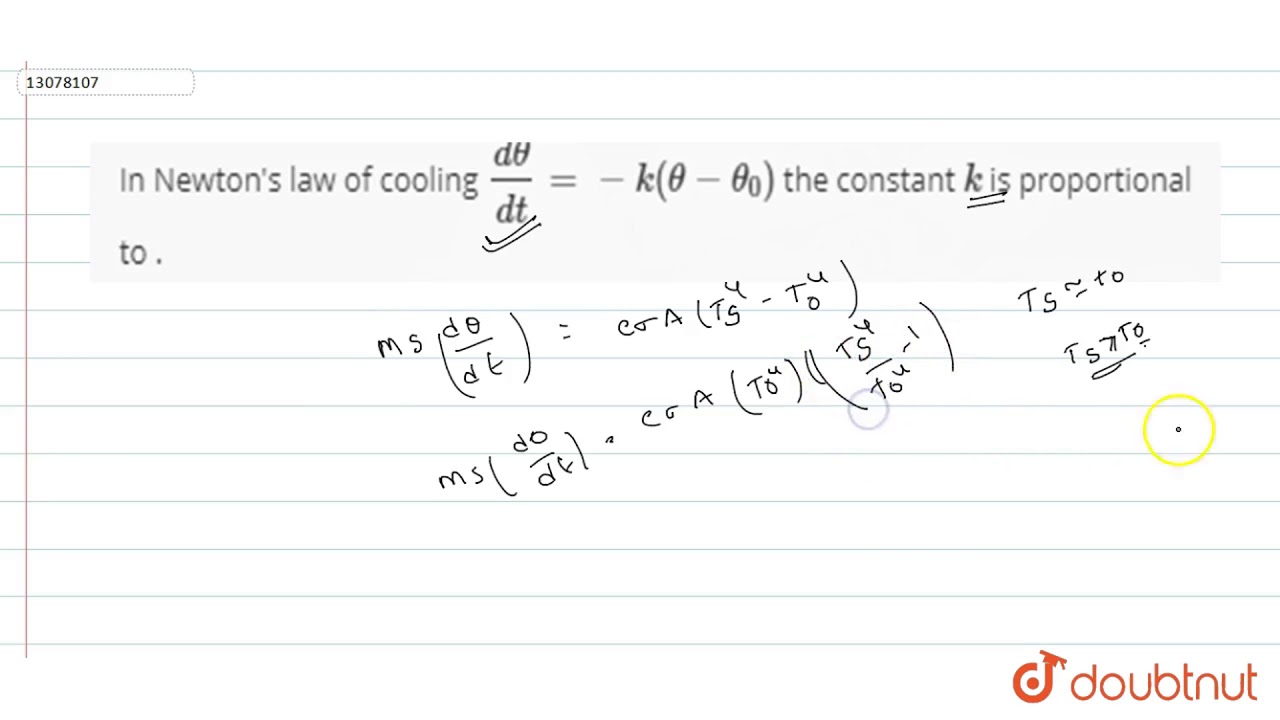 13078107
In Newton's law of cooling dθ/dt = − k(θ − θ₀) the constant k is proportional
to .
ms(dθ/dt) = eσA(Ts⁴ − T₀⁴)
Ts ≈ t₀
Ts > T₀
ms(dθ/dt) = eσA(T₀⁴)((Ts⁴/T₀⁴ − 1)
doubtnut